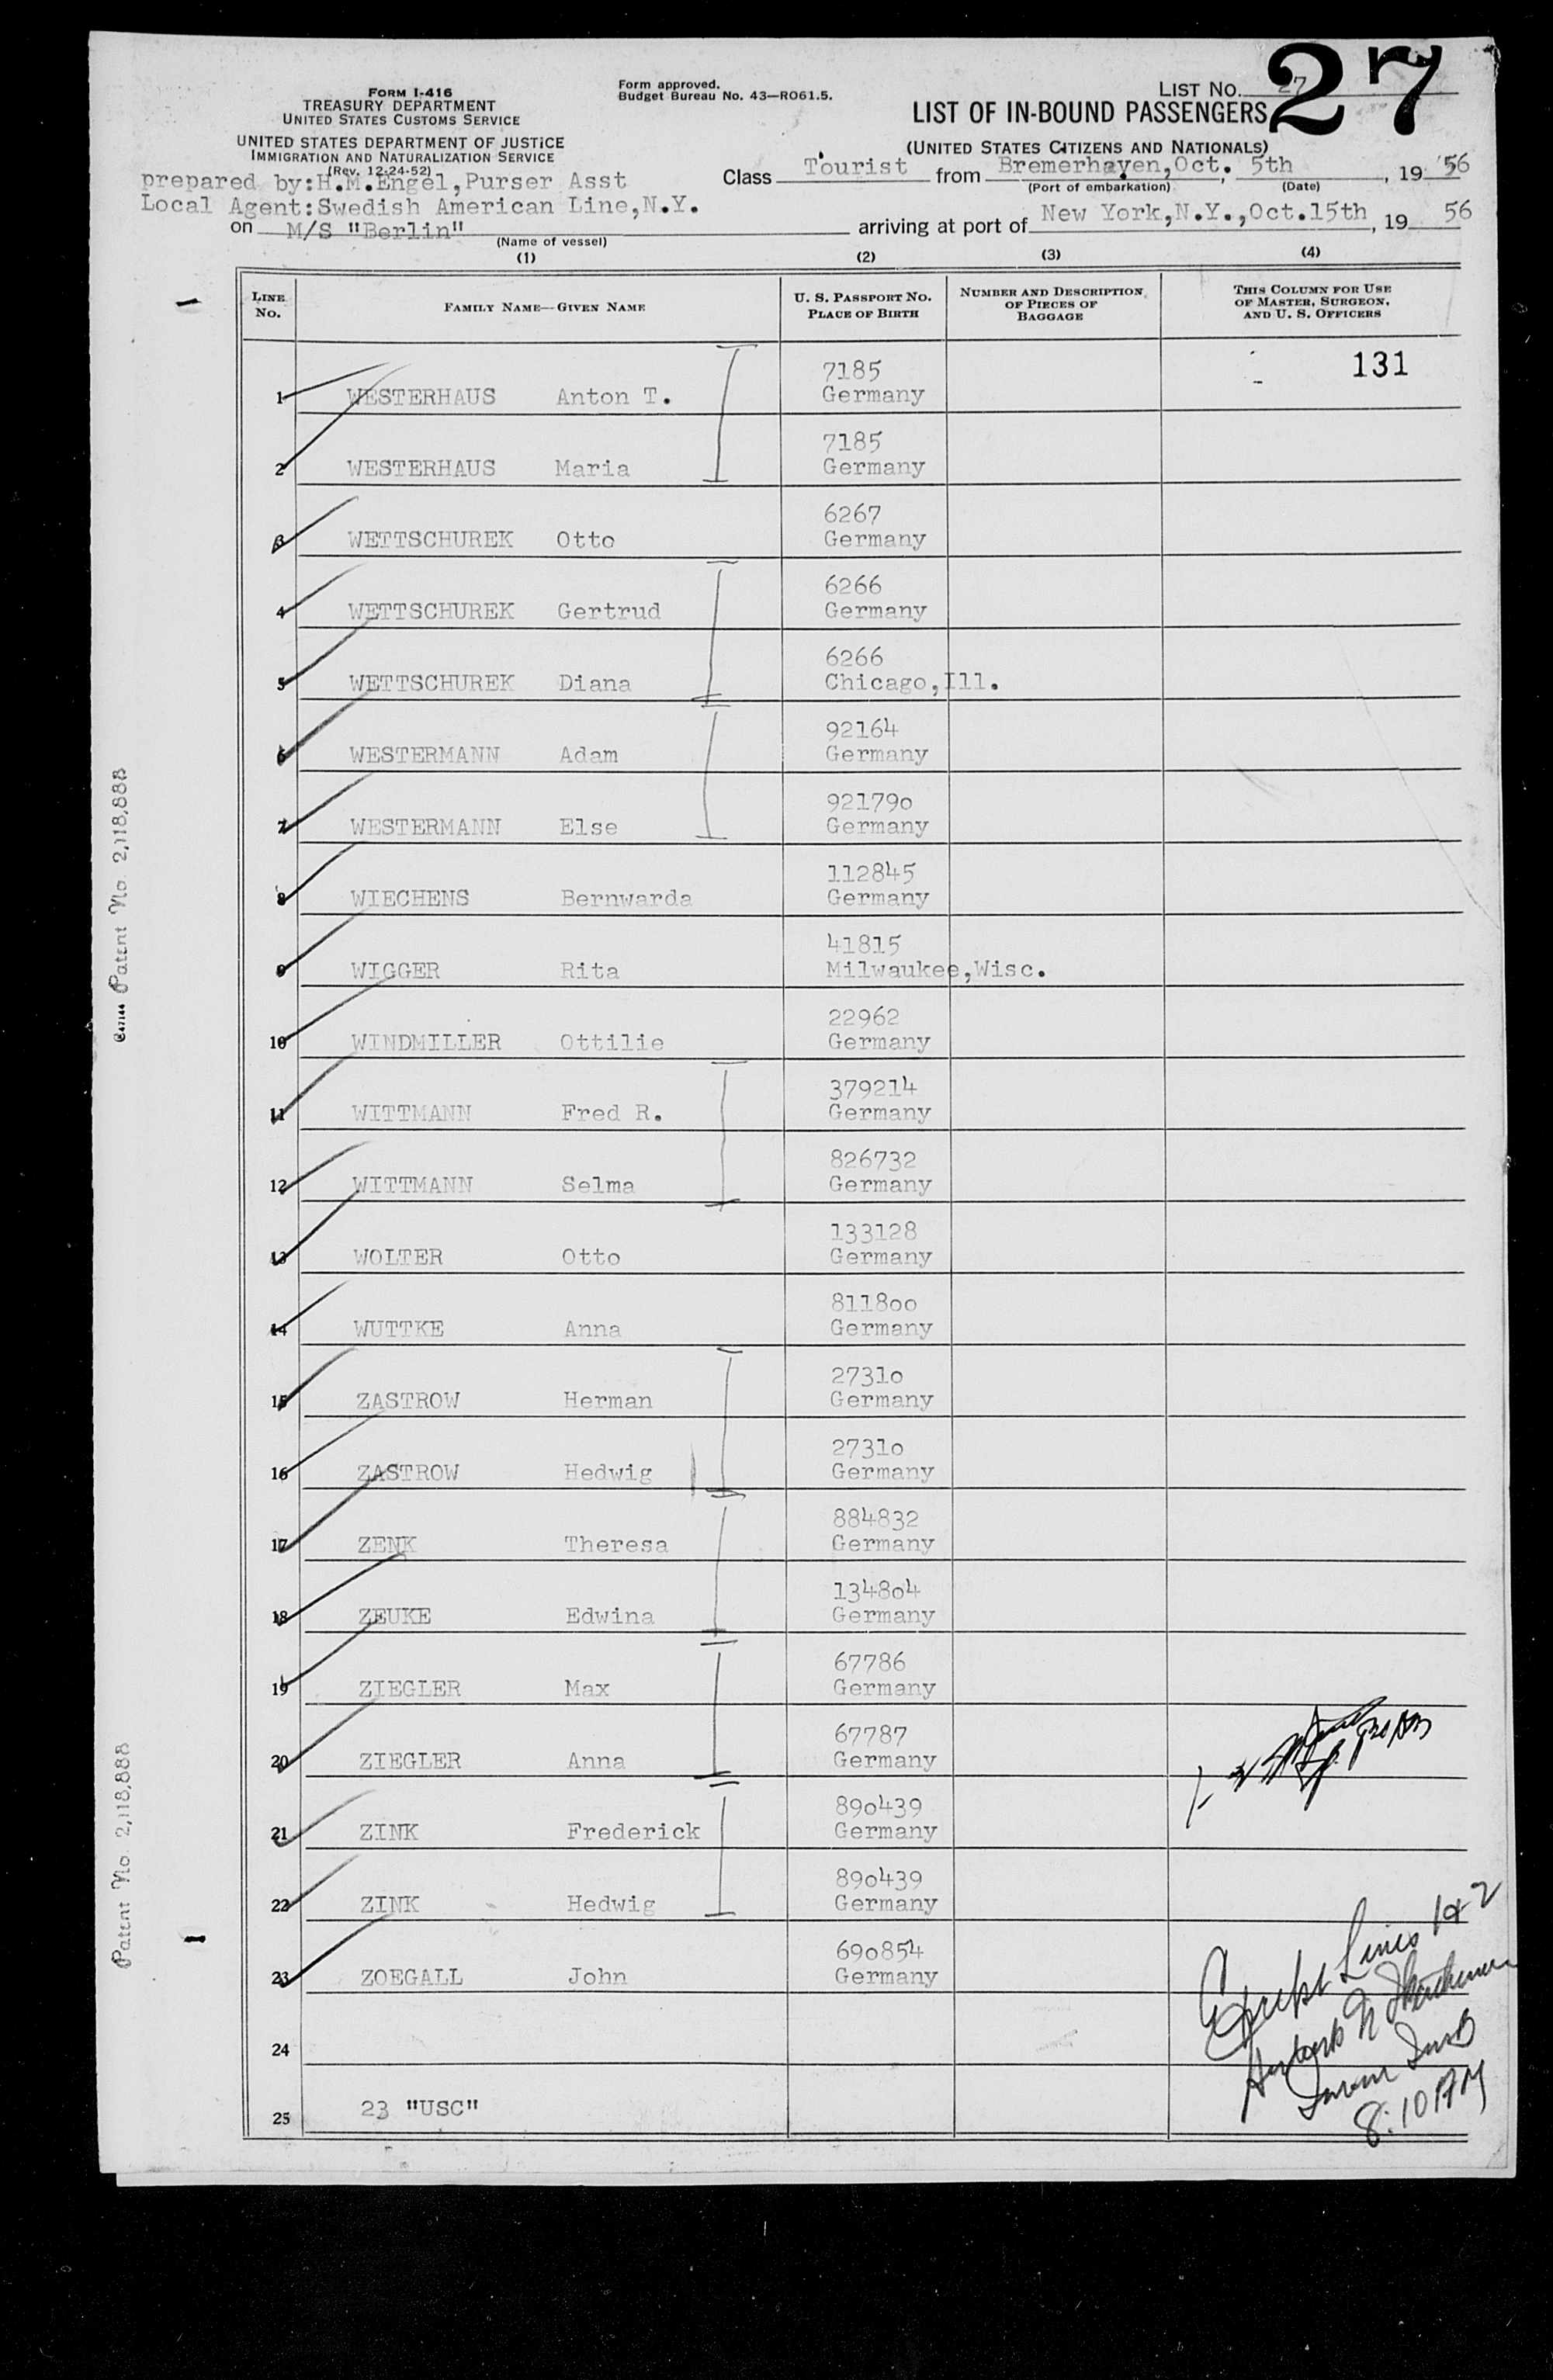 FORM I-416
TREASURY DEPARTMENT
UNITED STATES CUSTOMS SERVICE
UNITED STATES DEPARTMENT OF JUSTICE
IMMIGRATION AND NATURALIZATION SERVICE
(Rev. 12-24-52)
Form approved.
Budget Bureau No. 43—RO61.5.
LIST No. 27
27
LIST OF IN-BOUND PASSENGERS
(UNITED STATES CITIZENS AND NATIONALS)
prepared by:H.M.Engel,Purser Asst
Local Agent:Swedish American Line,N.Y.
Class Tourist from Bremerhaven,Oct. 5th, 19 56
(Port of embarkation) (Date)
on M/S "Berlin" arriving at port of New York,N.Y.,Oct.15th, 19 56
(Name of vessel)
(1) (2) (3) (4)
LINE No. FAMILY NAME—GIVEN NAME U. S. PASSPORT No. PLACE OF BIRTH NUMBER AND DESCRIPTION OF PIECES OF BAGGAGE THIS COLUMN FOR USE OF MASTER, SURGEON, AND U. S. OFFICERS
131
7185
1 WESTERHAUS Anton T. Germany
7185
2 WESTERHAUS Maria Germany
6267
3 WETTSCHUREK Otto Germany
6266
4 WETTSCHUREK Gertrud Germany
6266
5 WETTSCHUREK Diana Chicago,Ill.
92164
6 WESTERMANN Adam Germany
921790
7 WESTERMANN Else Germany
112845
8 WIECHENS Bernwarda Germany
41815
9 WIGGER Rita Milwaukee,Wisc.
22962
10 WINDMILLER Ottilie Germany
379214
11 WITTMANN Fred R. Germany
826732
12 WITTMANN Selma Germany
133128
13 WOLTER Otto Germany
811800
14 WUTTKE Anna Germany
27310
15 ZASTROW Herman Germany
27310
16 ZASTROW Hedwig Germany
884832
17 ZENK Theresa Germany
134804
18 ZEUKE Edwina Germany
67786
19 ZIEGLER Max Germany
67787
20 ZIEGLER Anna Germany
890439
21 ZINK Frederick Germany
890439
22 ZINK Hedwig Germany
690854
23 ZOEGALL John Germany
24
25 23 "USC"
Lines 1 & 2
8:10 AM
C47144 Patent No. 2,118,888
Patent No. 2,118,888